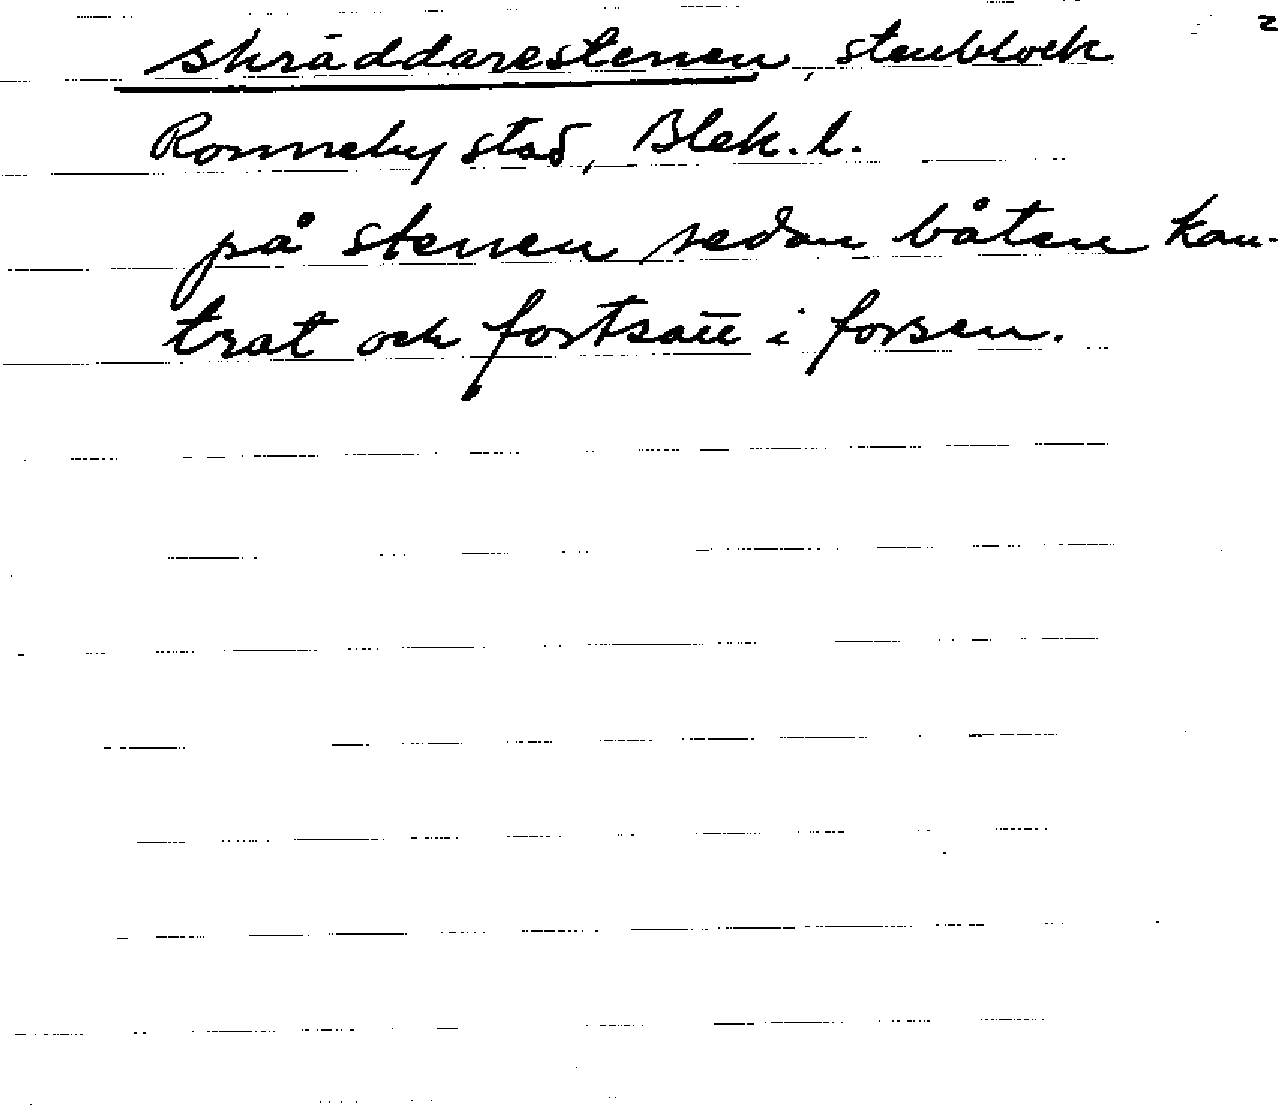 2
skräddarestenen, stenblock
Ronneby stad, Blek. l.
på stenen sedan båten kan-
trat och fortsatt i forsen.